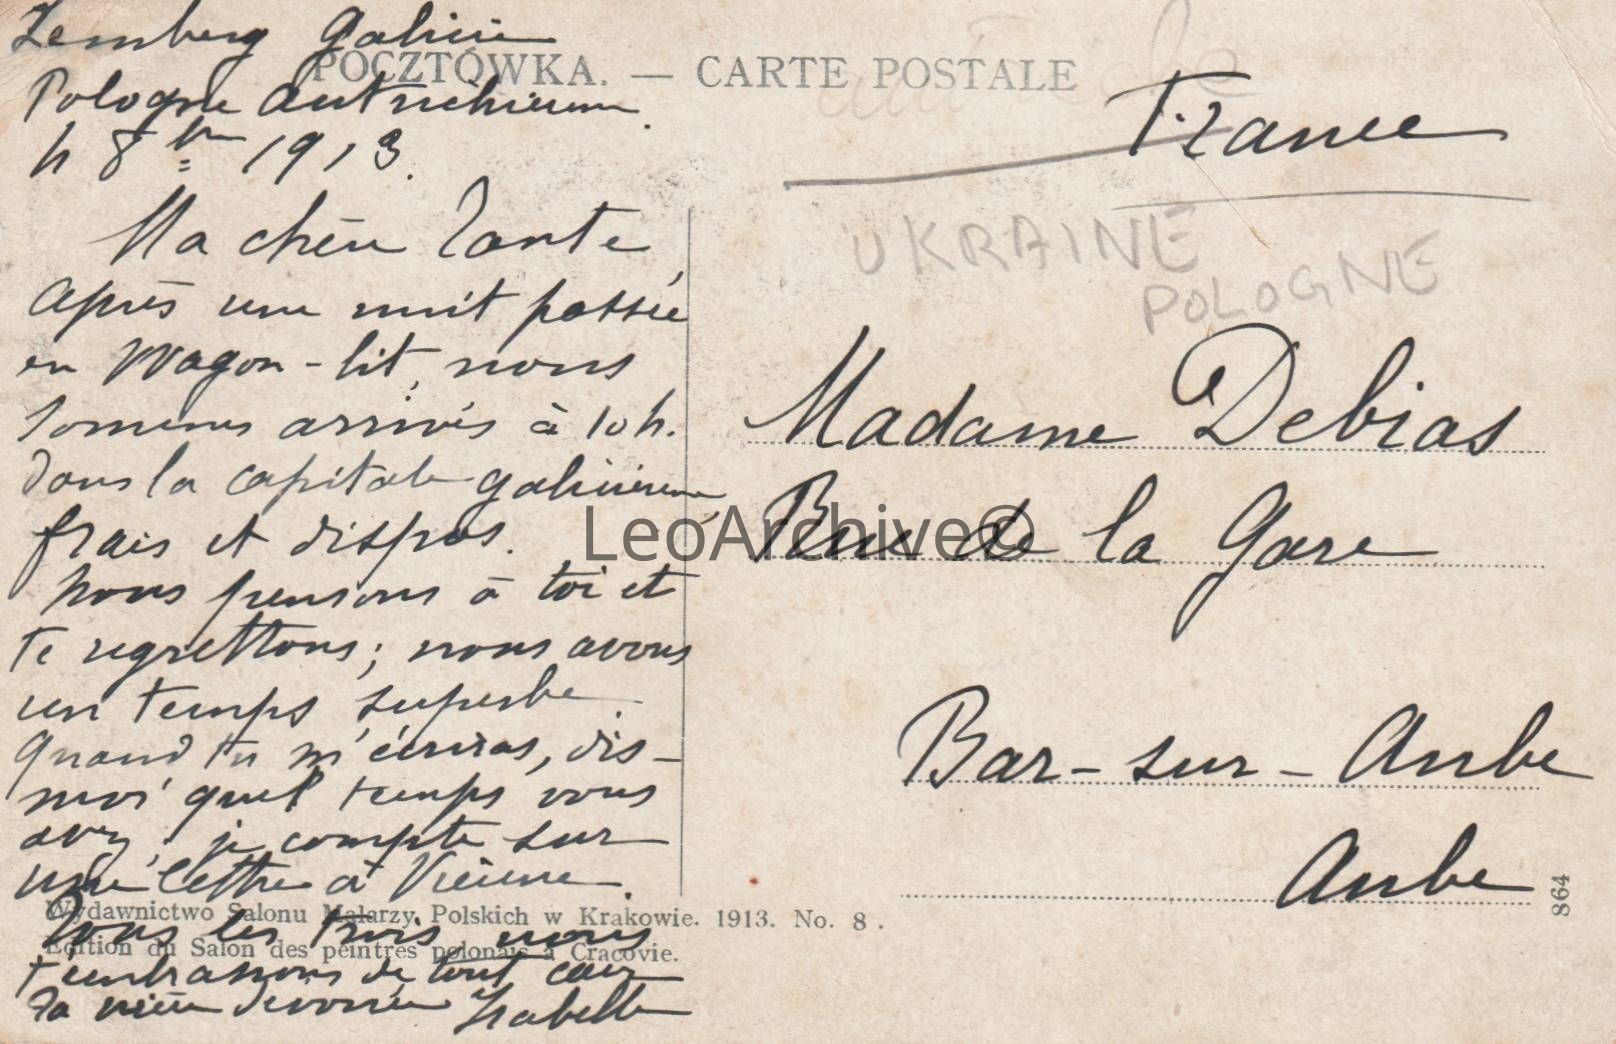 Lemberg Galicie
Pologne autrichienne.
h 8bre 1913.
Ma chère Tante,
après une nuit passée
en Wagon-lit, nous
sommes arrivés à 10h.
dans la capitale galicienne,
frais et dispos.
Nous pensons à toi et
te regrettons; nous avons
un temps superbe.
Quand tu m'écriras, dis-
moi quel temps vous
avez; je compte sur
une lettre à Vienne.
Tous les trois, nous
t'embrassons de tout cœur
Ta nièce dévouée Isabelle
POCZTÓWKA. — CARTE POSTALE
France
UKRAINE
POLOGNE
Madame Debias
Rue de la Gare
Bar-sur-Aube
Aube
864
Wydawnictwo Salonu Malarzy Polskich w Krakowie. 1913. No. 8.
Edition du Salon des peintres polonais à Cracovie.
LeoArchive©